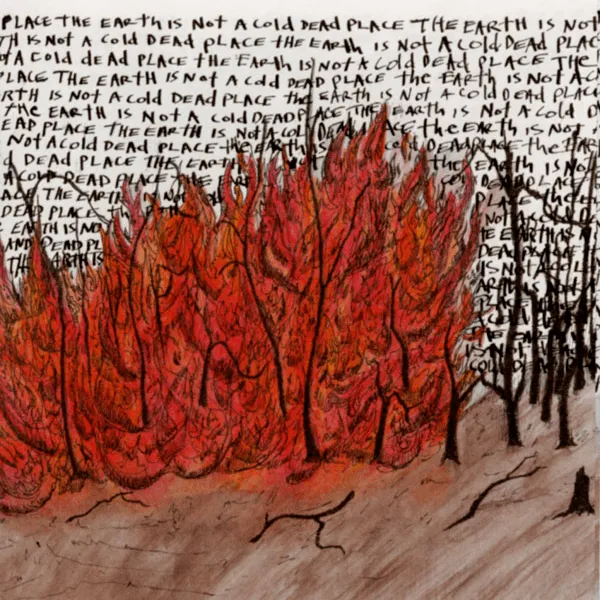 PLACE THE EARTH IS NOT A COLD DEAD PLACE THE EARTH IS NOT
TH IS NOT A COLD DEAD PLACE THE EARTH IS NOT A COLD DEAD PLAC
OT A COLD DEAD PLACE THE EARTH IS NOT A COLD DEAD PLACE THE
PLACE THE EARTH IS NOT A COLD DEAD PLACE THE EARTH IS NOT A CO
RTH IS NOT A COLD DEAD PLACE THE EARTH IS NOT A COLD DEAD PLACE
THE EARTH IS NOT A COLD DEAD PLACE THE EARTH IS NOT A COLD D
EAD PLACE THE EARTH IS NOT A COLD DEAD PLACE THE EARTH IS NOT
NOT A COLD DEAD PLACE THE EARTH IS COLD DEAD PLACE THE EAR
D DEAD PLACE THE EARTH THE EARTH IS NO
A COLD DEAD PLACE THE EAR COLD DEAD PLACE
ACE THE EARTH IS NOT PLACE THE
DEAD PLACE TH NOT A COLD D
E EARTH IS NO THE EARTH IS
AND DEAD PL DEAD PLACE
THE EARTH IS IS NOT A COLD
EARTH IS NOT
PLACE THE
A COLD
THE EAR
IS NOT
COLD DEAD PLA